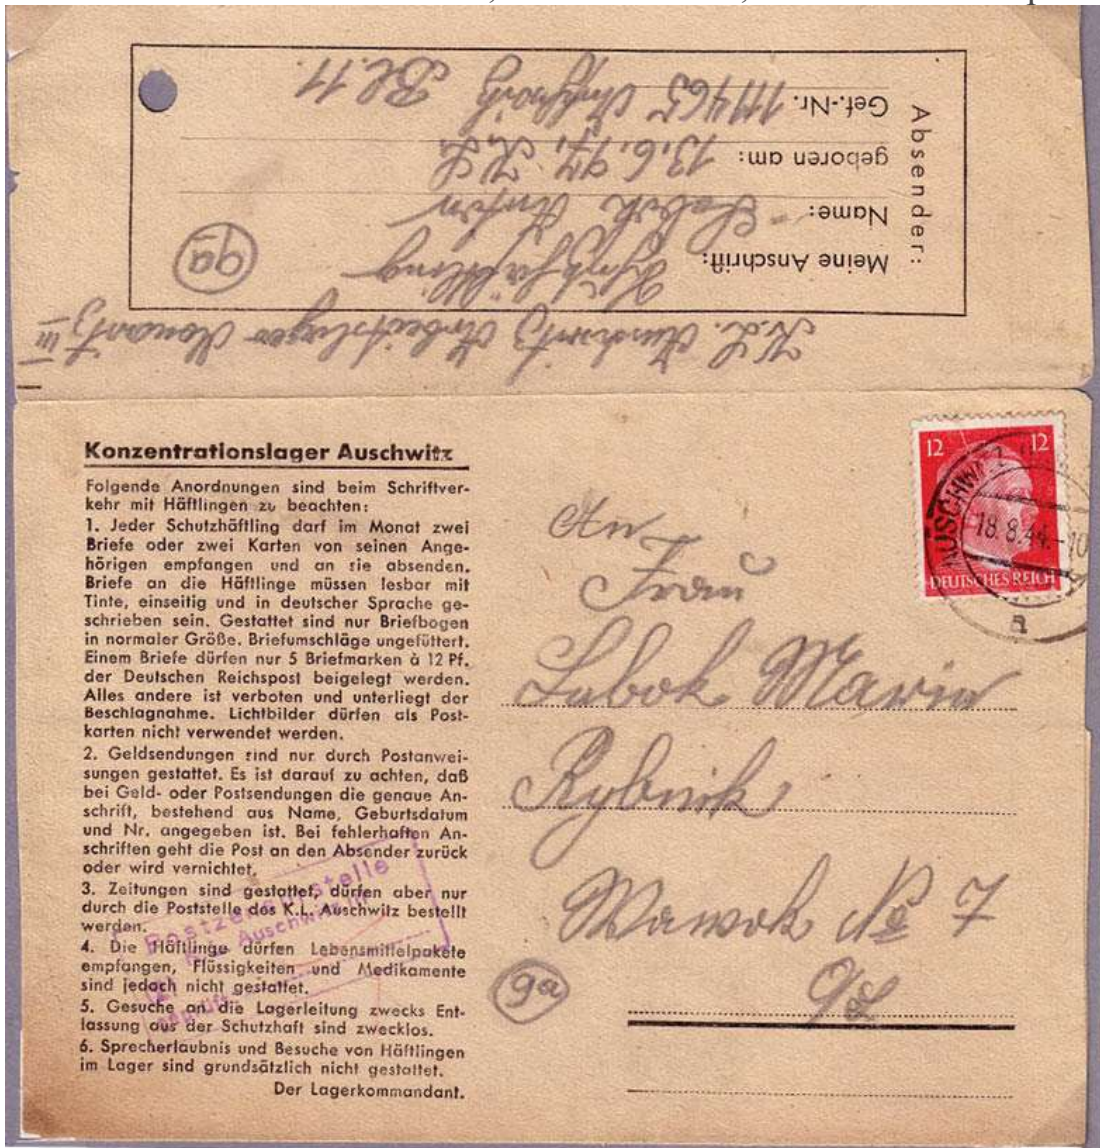 Absender:
Meine Anschrift: Schutzhäftling
Name:
geboren am: 13.6.97. K.L.
Gef.-Nr. 111465 Auschwitz Bl. 11
9a
K.L. Auschwitz Arbeitslager Monowitz III
Konzentrationslager Auschwitz
Folgende Anordnungen sind beim Schriftver-
kehr mit Häftlingen zu beachten:
1. Jeder Schutzhäftling darf im Monat zwei
Briefe oder zwei Karten von seinen Ange-
hörigen empfangen und an sie absenden.
Briefe an die Häftlinge müssen lesbar mit
Tinte, einseitig und in deutscher Sprache ge-
schrieben sein. Gestattet sind nur Briefbogen
in normaler Größe. Briefumschläge ungefüttert.
Einem Briefe dürfen nur 5 Briefmarken à 12 Pf.
der Deutschen Reichspost beigelegt werden.
Alles andere ist verboten und unterliegt der
Beschlagnahme. Lichtbilder dürfen als Post-
karten nicht verwendet werden.
2. Geldsendungen sind nur durch Postanwei-
sungen gestattet. Es ist darauf zu achten, daß
bei Geld- oder Postsendungen die genaue An-
schrift, bestehend aus Name, Geburtsdatum
und Nr. angegeben ist. Bei fehlerhaften An-
schriften geht die Post an den Absender zurück
oder wird vernichtet.
3. Zeitungen sind gestattet, dürfen aber nur
durch die Poststelle des K.L. Auschwitz bestellt
werden.
4. Die Häftlinge dürfen Lebensmittelpakete
empfangen, Flüssigkeiten und Medikamente
sind jedoch nicht gestattet.
5. Gesuche an die Lagerleitung zwecks Ent-
lassung aus der Schutzhaft sind zwecklos.
6. Sprecherlaubnis und Besuche von Häftlingen
im Lager sind grundsätzlich nicht gestattet.
Der Lagerkommandant.
Postzensurstelle
Auschwitz
12 12
DEUTSCHES REICH
AUSCHWITZ
18.8.44.-10
a
An
Frau
Labok Maria
Rybnik
Wawok № 7
9a
O/S